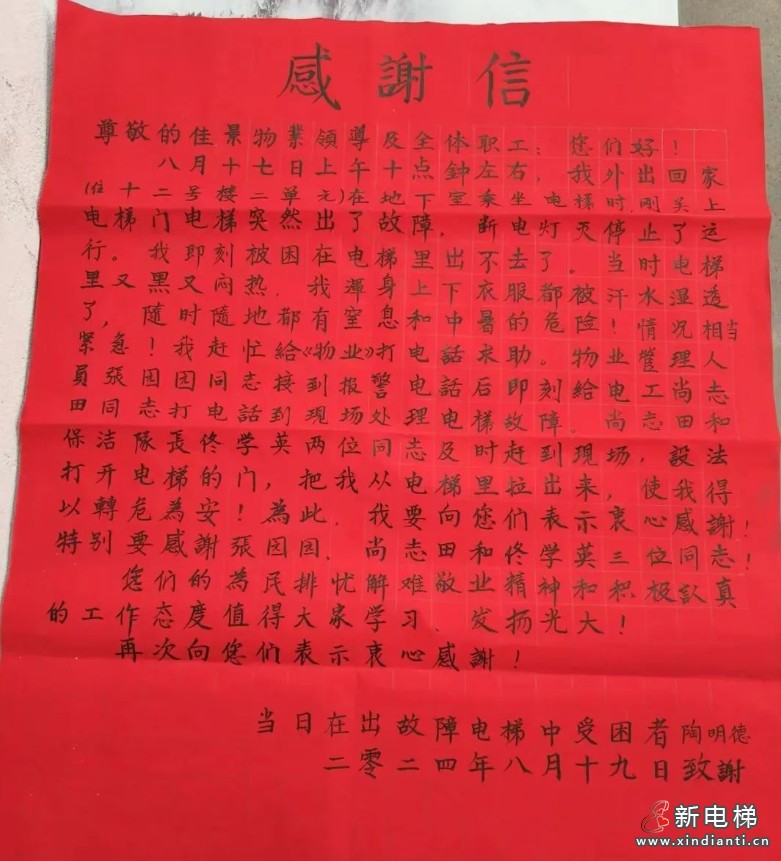 感謝信
尊敬的佳景物業領導及全体职工：您们好！
八月十七日上午十点鈡左右，我外出回家
(住十二号楼二单元)在地下室乘坐电梯时，刚关上
电梯门电梯突然出了故障，断电灯灭停止了运
行。我即刻被困在电梯里出不去了。当时电梯
里又黑又闷热，我渾身上下衣服都被汗水湿透
了，随时随地都有窒息和中暑的危险！情况相当
紧急！我赶忙給《物业》打电話求助。物业管理人
員張园园同志接到报警电話后即刻給电工尚志
田同志打电話到現场处理电梯故障。尚志田和
保洁隊長佟学英两位同志及时赶到現场，設法
打开电梯的门，把我从电梯里拉出来，使我得
以轉危為安！為此，我要向您们表示衷心感謝！
特别要感謝張园园、尚志田和佟学英三位同志！
您们的為民排忧解难敬业精神和积极认真
的工作态度值得大家学习、发扬光大！
再次向您们表示衷心感謝！
当日在出故障电梯中受困者陶明德
二零二四年八月十九日致謝
新电梯
www.xindianti.cn